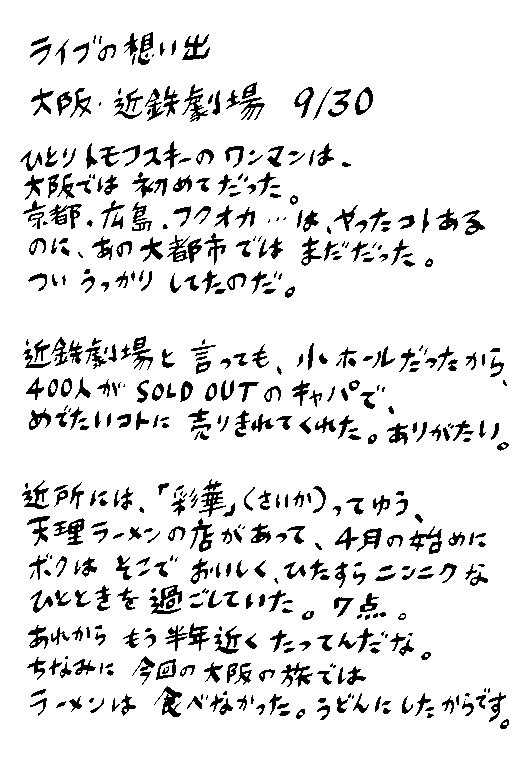 ライブの想い出
大阪・近鉄劇場 9/30
ひとりトモフスキーのワンマンは、
大阪では 初めてだった。
京都・広島・フクオカ…は、やったコトある
のに、あの大都市では まだだった。
つい うっかり してたのだ。
近鉄劇場と 言っても、小ホールだったから、
400人が SOLD OUTの キャパで、
めでたいコトに 売りきれてくれた。ありがたい。
近所には、「彩華」(さいか)ってゆう、
天理ラーメンの店があって、4月の始めに
ボクは そこで おいしく、ひたすらニンニクな
ひとときを 過ごしていた。7点。
あれから もう半年近く たってんだな。
ちなみに 今回の大阪の旅では
ラーメンは 食べなかった。うどんにしたからです。